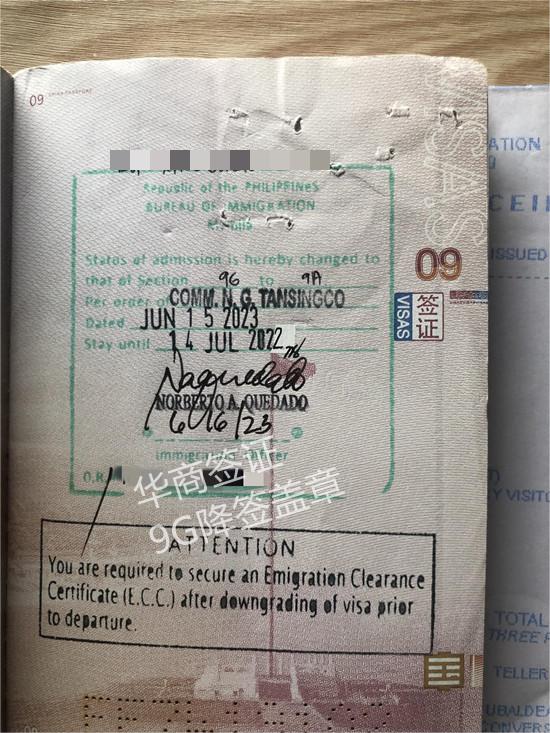 09
Republic of the PHILIPPINES
BUREAU OF IMMIGRATION
Status of admission is hereby changed to
that of Section 9G to 9A
Per order of COMM. N. G. TANSINGCO
Dated JUN 15 2023
Stay until 14 JUL 2022
NORBERTO A. QUEDADO
6/16/23
immigration officer
O.R.
华商签证
9G降签盖章
ATTENTION
You are required to secure an Emigration Clearance
Certificate (E.C.C.) after downgrading of visa prior
to departure.
VISAS
09
VISAS
签证
ATION
CEI
ISSUED
Y VISITO
TOTAL
THREE
TELLER
UBALDE
CONVERS